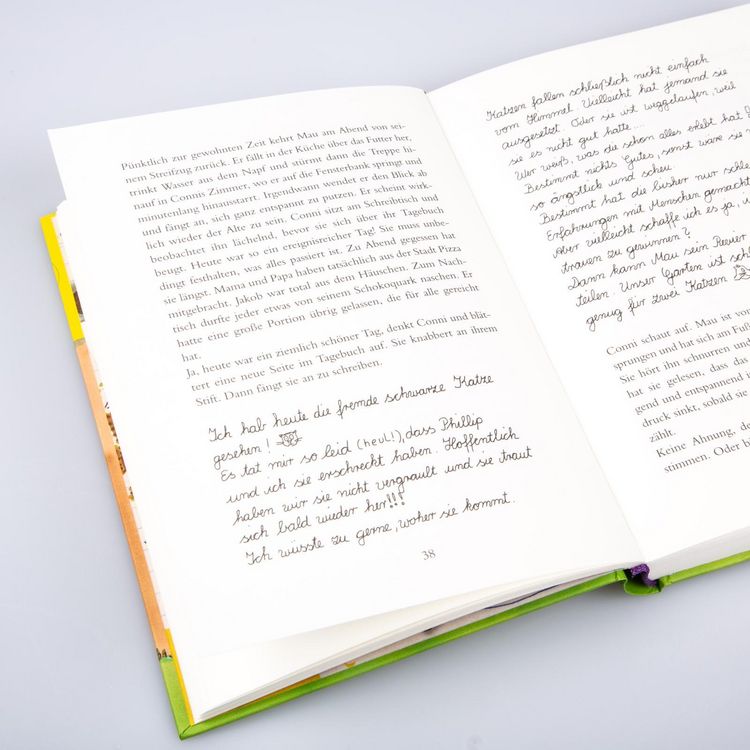 Pünktlich zur gewohnten Zeit kehrt Mau am Abend von sei-
nem Streifzug zurück. Er fällt in der Küche über das Futter her,
trinkt Wasser aus dem Napf und stürmt dann die Treppe hi-
nauf in Connis Zimmer, wo er auf die Fensterbank springt und
minutenlang hinausstarrt. Irgendwann wendet er den Blick ab
und fängt an, sich ganz entspannt zu putzen. Er scheint wirk-
lich wieder der Alte zu sein. Conni sitzt am Schreibtisch und
beobachtet ihn lächelnd, bevor sie sich über ihr Tagebuch
beugt. Heute war so ein ereignisreicher Tag! Sie muss unbe-
dingt festhalten, was alles passiert ist. Zu Abend gegessen hat
sie längst. Mama und Papa haben tatsächlich aus der Stadt Pizza
mitgebracht. Jakob war total aus dem Häuschen. Zum Nach-
tisch durfte jeder etwas von seinem Schokoquark naschen. Er
hatte eine große Portion übrig gelassen, die für alle gereicht
hat.
Ja, heute war ein ziemlich schöner Tag, denkt Conni und blät-
tert eine neue Seite im Tagebuch auf. Sie knabbert an ihrem
Stift. Dann fängt sie an zu schreiben.
Ich hab heute die fremde schwarze Katze
gesehen!
Es tat mir so leid (heul!), dass Phillip
und ich sie erschreckt haben. Hoffentlich
haben wir sie nicht vergrault und sie traut
sich bald wieder her!!!
Ich wüsste zu gerne, woher sie kommt.
38
Katzen fallen schließlich nicht einfach
vom Himmel. Vielleicht hat jemand sie
ausgesetzt. Oder sie ist weggelaufen, weil
sie es nicht gut hatte....
Wer weiß, was die schon alles erlebt hat?
Bestimmt nichts Gutes, sonst wäre sie
so ängstlich und scheu.
Bestimmt hat die bisher nur
Erfahrungen mit Menschen gemacht
Aber vielleicht schaffe ich es ja,
trauen zu gewinnen?
Dann kann Mau sein Revier
teilen. Unser Garten ist
genug für zwei Katzen
Conni schaut auf. Mau ist
sprungen und hat sich am
Sie hört ihn schnurren und
hat sie gelesen, dass das
gend und entspannend
druck sinkt, sobald sie
zählt.
Keine Ahnung,
stimmen. Oder